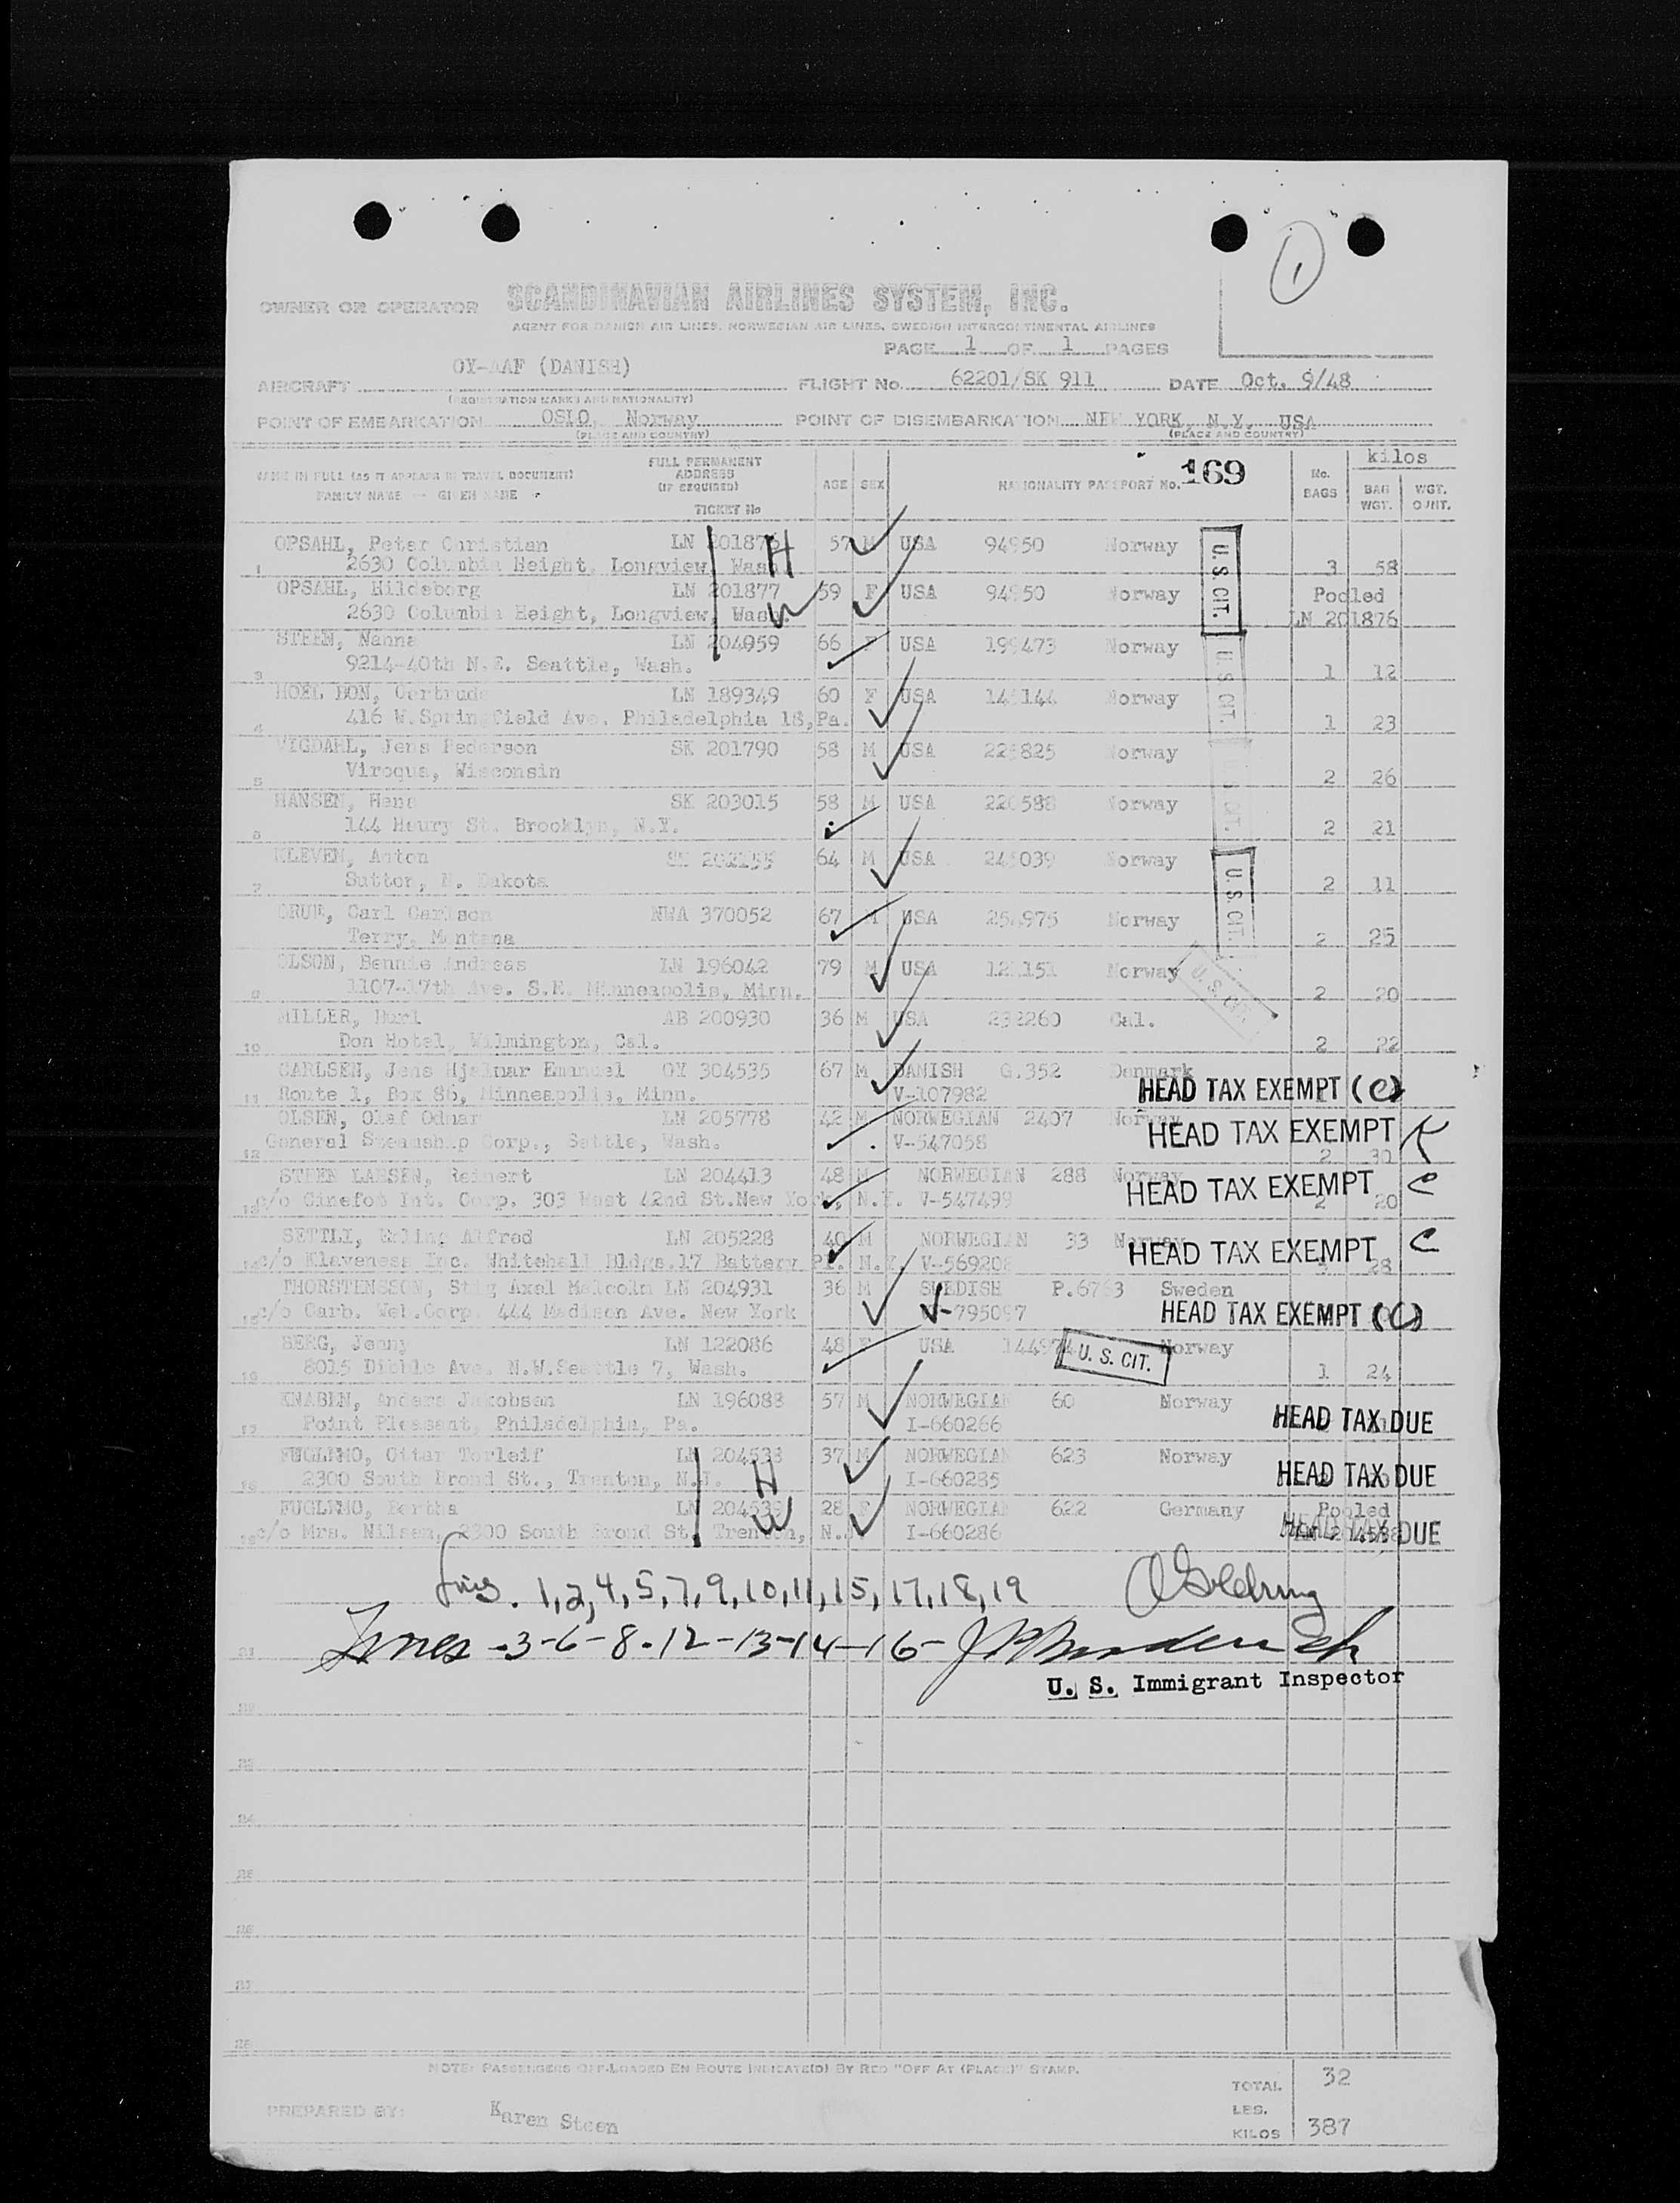 1
OWNER OR OPERATOR SCANDINAVIAN AIRLINES SYSTEM, INC.
AGENT FOR DANISH AIR LINES, NORWEGIAN AIR LINES, SWEDISH INTERCONTINENTAL AIRLINES
PAGE 1 OF 1 PAGES
AIRCRAFT OY-AAF (DANISH) FLIGHT No. 62201/SK 911 DATE Oct. 9/48
(REGISTRATION MARKS AND NATIONALITY)
POINT OF EMBARKATION OSLO, Norway POINT OF DISEMBARKATION NEW YORK, N.Y. USA
(PLACE AND COUNTRY) (PLACE AND COUNTRY)
NAME IN FULL (AS IT APPEARS IN TRAVEL DOCUMENT) FULL PERMANENT ADDRESS (IF REQUIRED) AGE SEX NATIONALITY PASSPORT No. 169 No. BAGS kilos
FAMILY NAME -- GIVEN NAME TICKET No BAG WGT. WGT.
OPSAHL, Peter Christian LN 201876 H 57 M USA 94950 Norway U.S. CIT.
1 2630 Columbia Height, Longview, Wash. 3 58
OPSAHL, Hildeborg LN 201877 59 F USA 94950 Norway Pooled
2630 Columbia Height, Longview, Wash. W LN 201876
STEEN, Nanna LN 204959 66 F USA 199473 Norway U S CIT.
3 9214-40th N.E. Seattle, Wash. 1 12
HOEL DON, Gertrude LN 189349 60 F USA 145144 Norway
4 416 W.Springfield Ave. Philadelphia 18, Pa. 1 23
VIGDAHL, Jens Pederson SK 201790 58 M USA 226825 Norway
5 Viroqua, Wisconsin 2 26
HANSEN, Hans SK 203015 58 M USA 220588 Norway
6 144 Henry St. Brooklyn, N.Y. 2 21
KLEVEN, Anton SK 202155 64 M USA 245039 Norway U.S. CIT.
7 Sutton, N. Dakota 2 11
Carl Carlson NWA 370052 67 M USA 254975 Norway
Terry, Montana 2 25
OLSON, Bennie Andreas LN 196042 79 M USA 121151 Norway U. S. CIT.
9 1107-17th Ave. S.E. Minneapolis, Minn. 2 20
MILLER, Burl AB 200930 36 M USA 232260 Cal.
10 Don Hotel, Wilmington, Cal. 2 22
CARLSEN, Jens Hjalmar Emanuel OY 304535 67 M DANISH G.352 Denmark
11 Route 1, Box 86, Minneapolis, Minn. V-107982 HEAD TAX EXEMPT (C)
OLSEN, Olaf Odnar LN 205778 42 M NORWEGIAN 2407 Norway
12 General Steamship Corp., Settle, Wash. V-547058 HEAD TAX EXEMPT 2 31
STEEN LARSEN, Reinert LN 204413 48 M NORWEGIAN 288 Norway
13 c/o Cinefot Int. Corp. 303 West 42nd St.New York, N.Y. V-547499 HEAD TAX EXEMPT C 2 20
SETTLI, Erling Alfred LN 205228 40 M NORWEGIAN 33 Norway
14 c/o Klaveness Inc. Whitehall Bldgs.17 Battery Pl. N.Y. V-569208 HEAD TAX EXEMPT C 3 28
THORSTENSSON, Stig Axel Malcolm LN 204931 36 M SWEDISH P.6763 Sweden
15 c/o Carb. Wel.Corp. 444 Madison Ave. New York V-795097 HEAD TAX EXEMPT (C)
BERG, Jenny LN 122086 48 F USA 144974 U. S. CIT. Norway
16 8015 Dibble Ave. N.W.Seattle 7, Wash. 1 24
KNABEN, Anders Jacobsen LN 196088 57 M NORWEGIAN 60 Norway
17 Point Pleasant, Philadelphia, Pa. I-660266 HEAD TAX DUE
FUGLEMO, Ottar Torleif LN 204538 37 M NORWEGIAN 623 Norway
18 2300 South Broad St., Trenton, N.J. H I-660285 HEAD TAX DUE
FUGLEMO, Bertha LN 204539 W 28 F NORWEGIAN 622 Germany Pooled
19 c/o Mrs. Nilsen, 2300 South Broad St. Trenton, N.J. I-660286 LN 204538 HEAD TAX DUE
1,2,4,5,7,9,10,11,15,17,18,19
21 Lines -3-6-8-12-13-14-16-
U. S. Immigrant Inspector
22
23
24
25
26
27
28
NOTE: PASSENGERS OFF-LOADED EN ROUTE INDICATE(D) BY RED "OFF AT (PLACE)" STAMP.
TOTAL 32
PREPARED BY: Karen Steen LBS.
KILOS 387